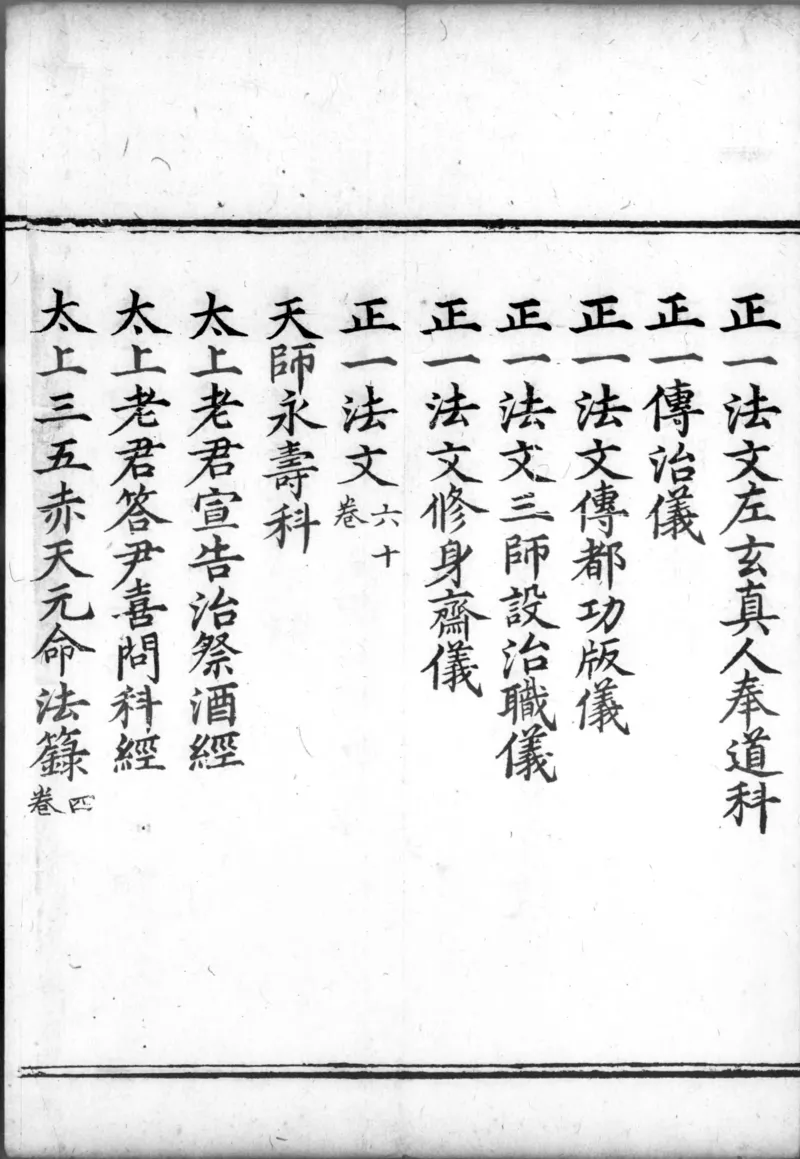 正一法文左玄真人奉道科
正一傳治儀
正一法文傳都功版儀
正一法文三師設治職儀
正一法文修身齋儀
正一法文六十卷
天師永壽科
太上老君宣告治祭酒經
太上老君答尹喜問科經
太上三五赤天元命法籙四卷